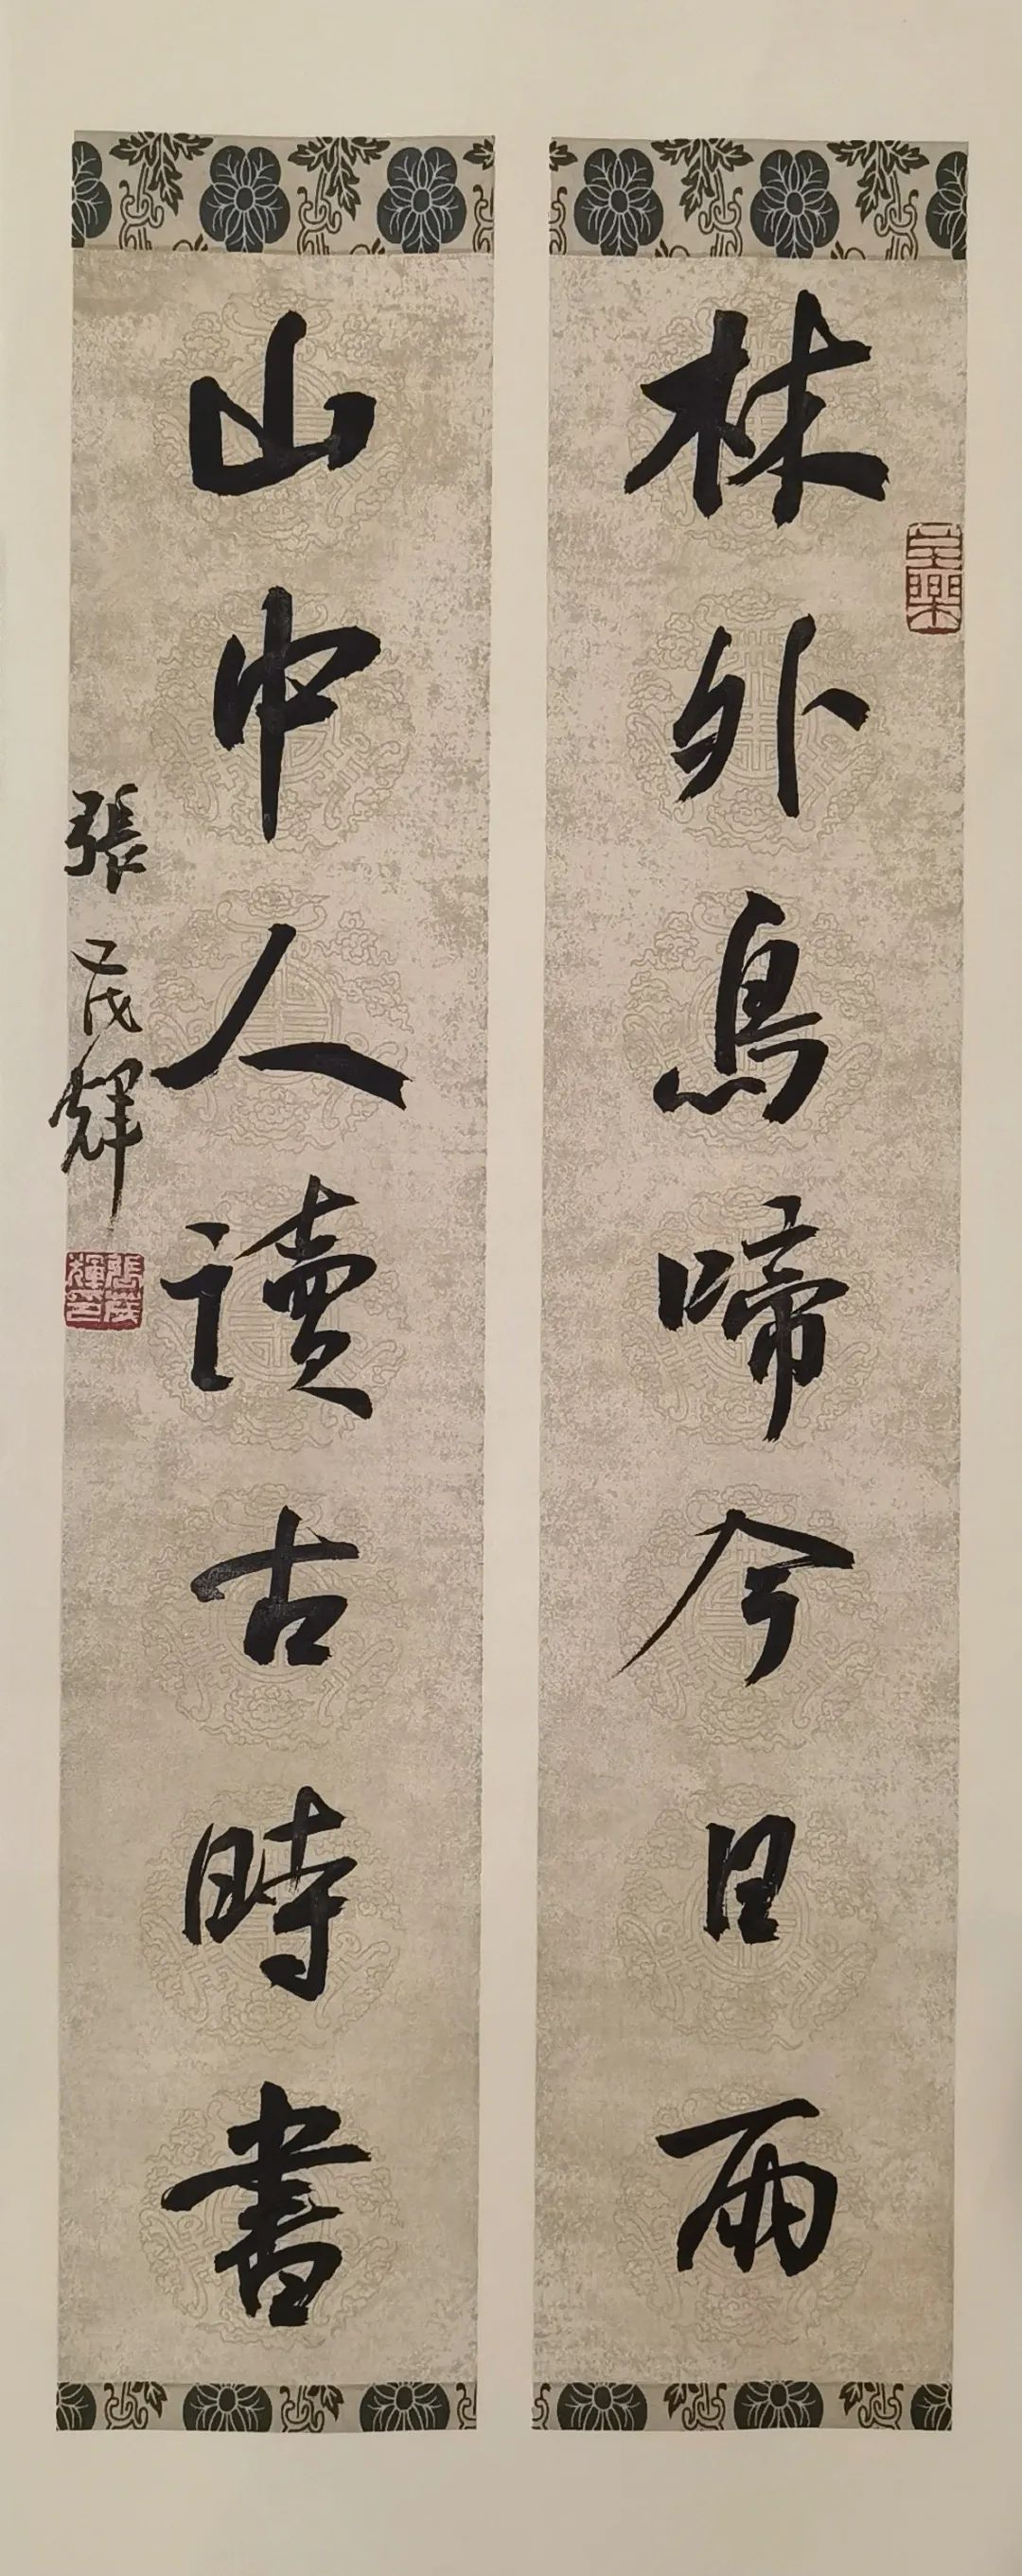 林外鳥啼今日雨
山中人讀古時書
張茂輝
張茂輝印